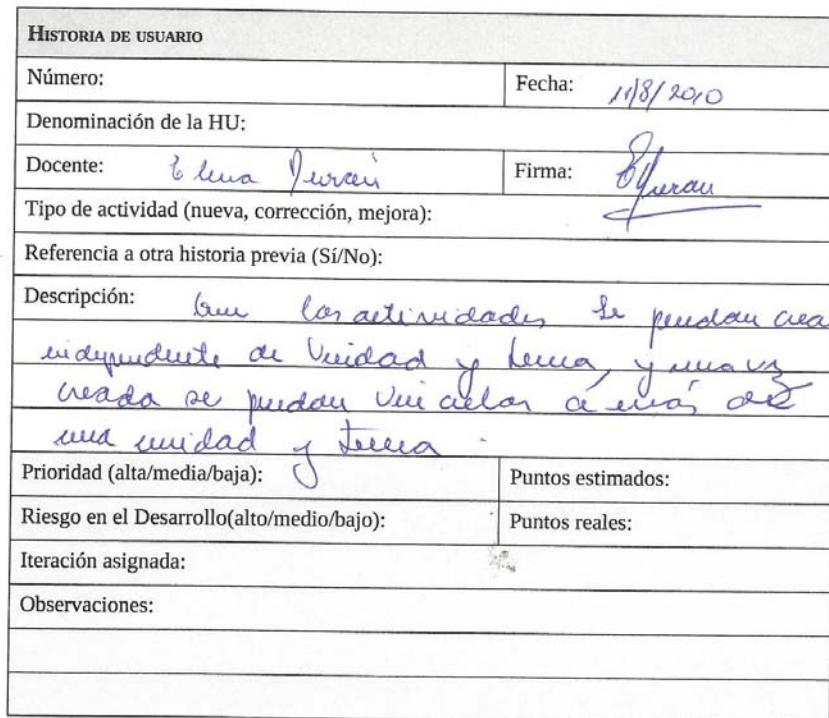 HISTORIA DE USUARIO
Número: Fecha: 11/8/2010
Denominación de la HU:
Docente: Elena Durán Firma: EDuran
Tipo de actividad (nueva, corrección, mejora):
Referencia a otra historia previa (Sí/No):
Descripción: Que las actividades se puedan crea
independiente de Unidad y tema, y una vez
creada se puedan vincular a más de
una unidad y tema.
Prioridad (alta/media/baja): Puntos estimados:
Riesgo en el Desarrollo(alto/medio/bajo): Puntos reales:
Iteración asignada:
Observaciones: